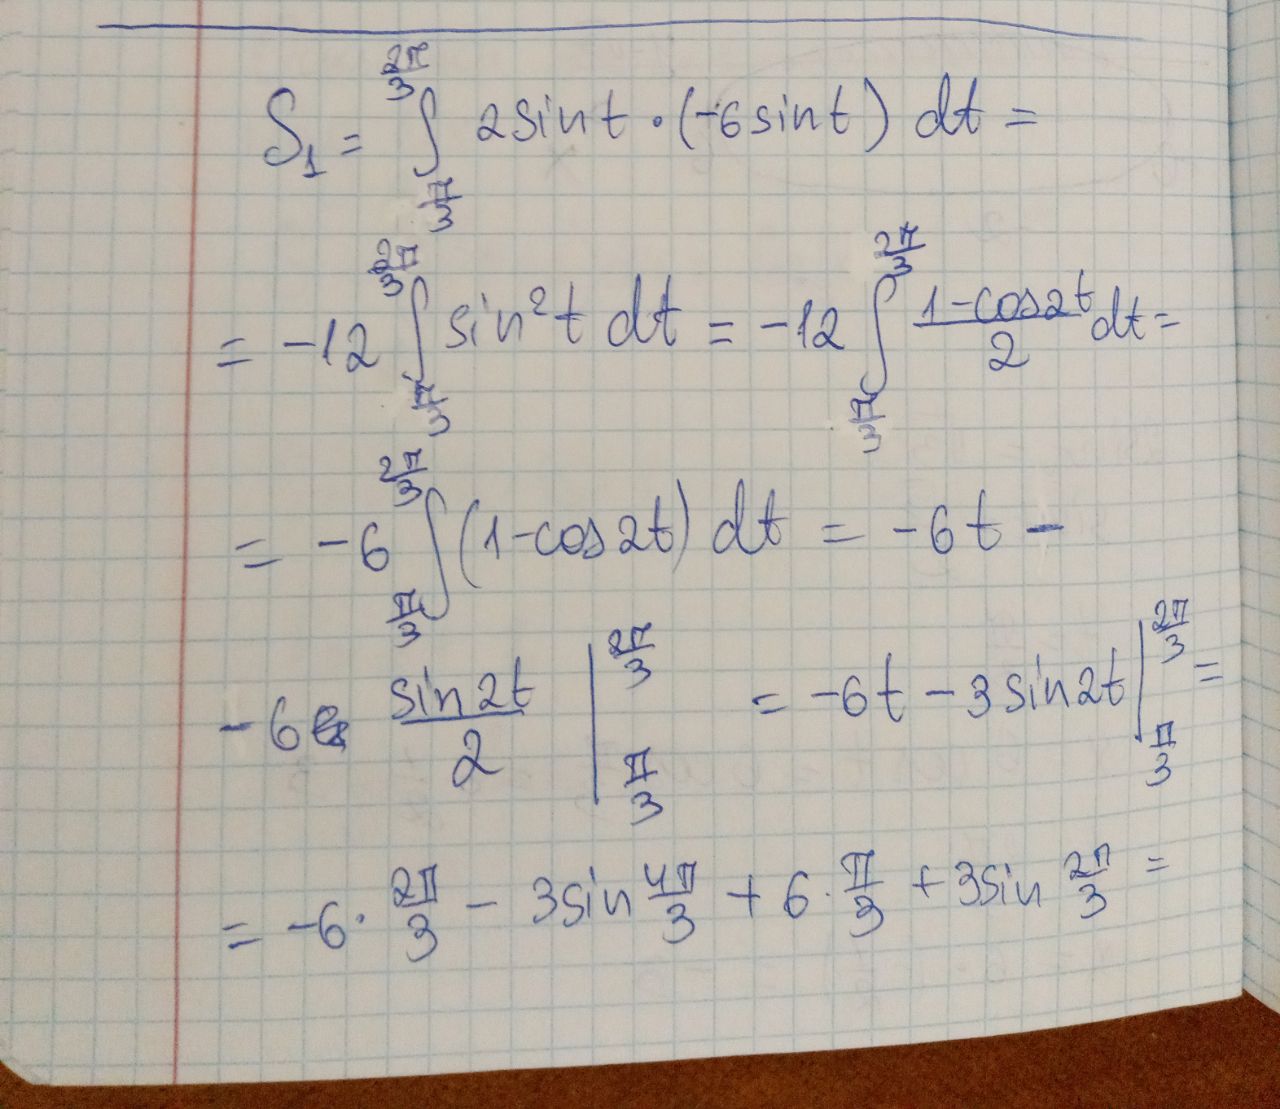 S₁ = ∫_{π/3}^{2π/3} 2sint·(-6sint) dt =
= -12 ∫_{π/3}^{2π/3} sin²t dt = -12 ∫_{π/3}^{2π/3} (1-cos2t)/2 dt =
= -6 ∫_{π/3}^{2π/3} (1-cos2t) dt = -6t -
-6 sin2t/2 |_{π/3}^{2π/3} = -6t - 3sin2t |_{π/3}^{2π/3} =
= -6·2π/3 - 3sin 4π/3 + 6·π/3 + 3sin 2π/3 =